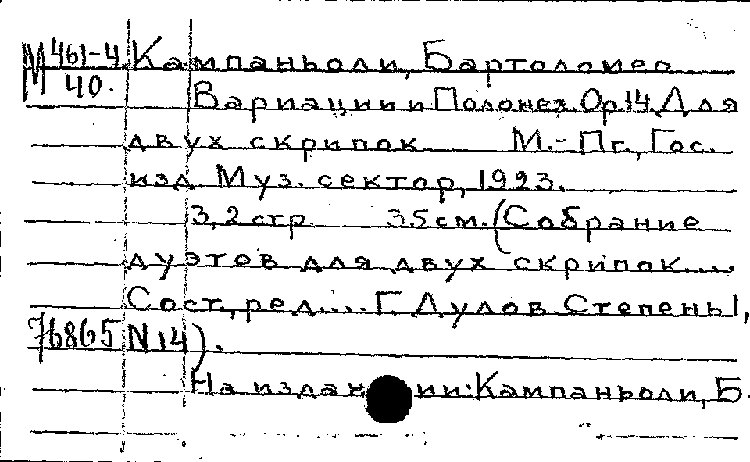 М 461-4 Кампаньоли, Бартоломео
М 40. Вариации и Полонез. Ор. 14. Для
двух скрипок М.-Пг., Гос.
изд. Муз. сектор, 1923.
3,2 стр 35 см. (Собрание
дуэтов для двух скрипок....
Сост., ред.... Г. Дулов Степень I,
76865 N 14).
На издании: Кампаньоли, Б.